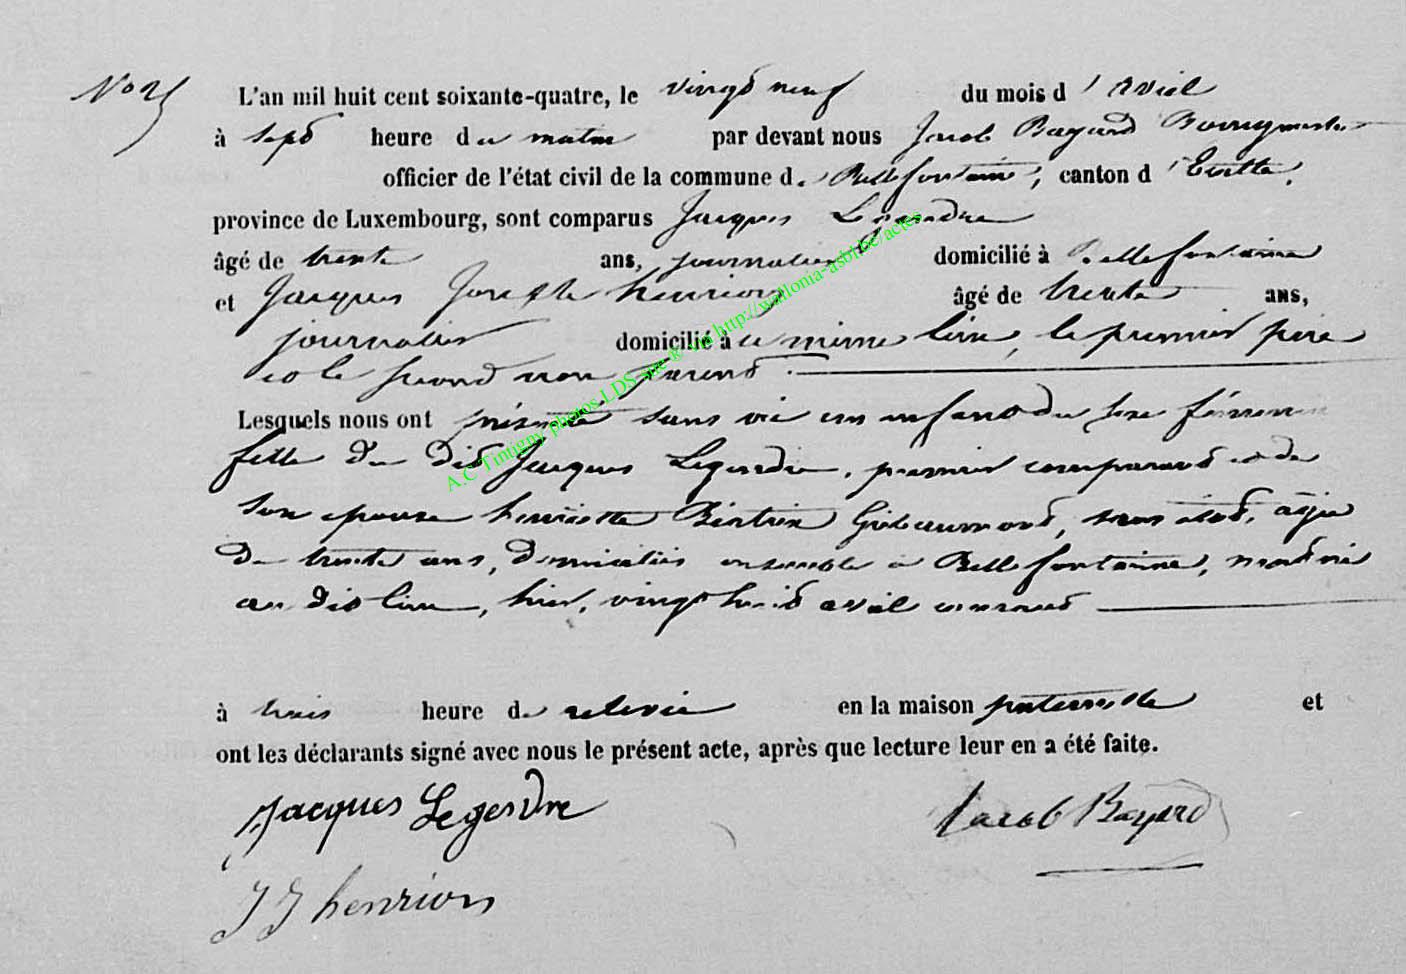 No 25
L'an mil huit cent soixante-quatre, le vingt neuf du mois d'avril
à sept heure du matin par devant nous Jacob Bayard Bourgmestre
officier de l'état civil de la commune d. Bellefontaine, canton d'Etalle,
province de Luxembourg, sont comparus Jacques Legendre
âgé de trente ans, journalier domicilié à Bellefontaine
et Jacques Joseph henrion âgé de trente ans,
journalier domicilié à ce même lieu, le premier père
et le second non parent.
Lesquels nous ont présenté sans vie un enfant du sexe féminin
fille du dit Jacques Legendre, premier comparant et de
son épouse henriette Gribaumont, sans état, agée
de trente ans, domiciliés ensemble à Bellefontaine, mort né
au dit lieu, hier, vingt huit avril courant
à trois heure de relevée en la maison paternelle et
ont les déclarants signé avec nous le présent acte, après que lecture leur en a été faite.
Jacques Legendre
Jacob Bayard
J J henrion
A.C Tintigny photos LDS site ® via http://wallonia-asbl.be/actes